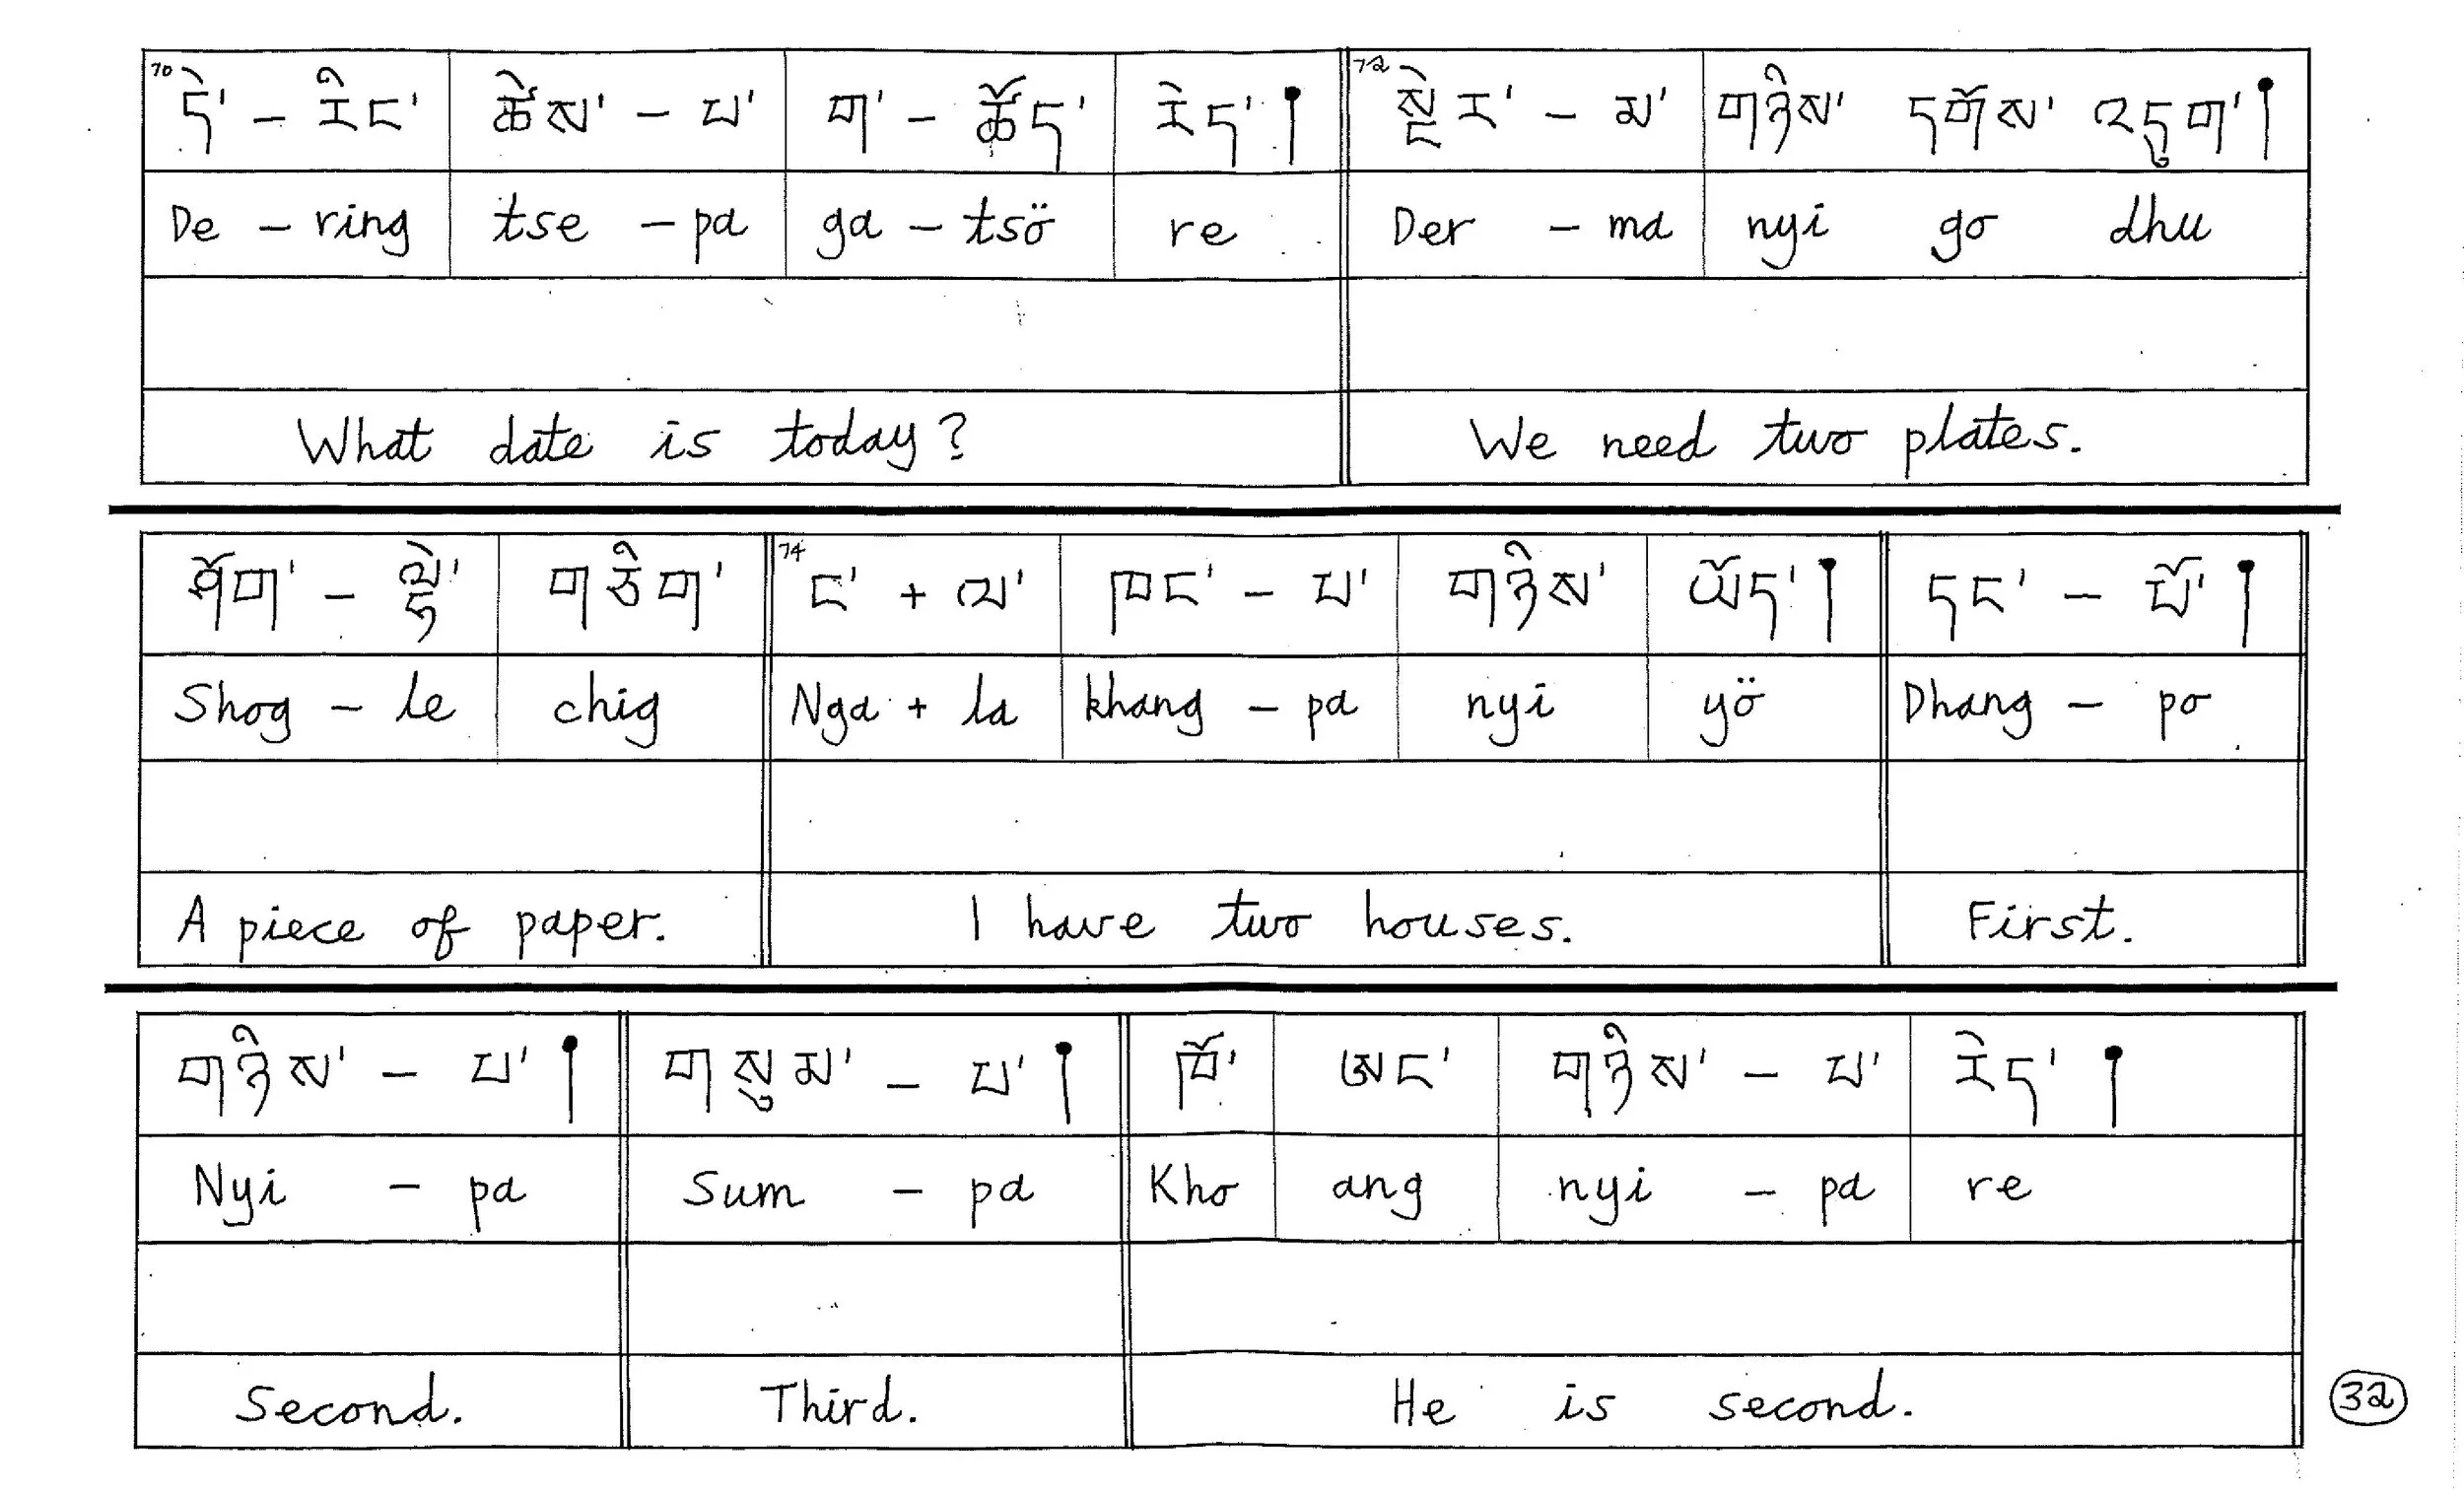 70 དེ་ - རིང་ ཚེས་ - པ་ ག་ - ཚོད་ རེད་། 72 སྡེར་ - མ་ གཉིས་ དགོས་ འདུག་།
De - ring tse - pa ga - tsö re Der - ma nyi go dhu
What date is today? We need two plates.
ཤོག་ - ལྡེ་ གཅིག་ 74 ང་ + ལ་ ཁང་ - པ་ གཉིས་ ཡོད་། དང་ - པོ་།
Shog - le chig Nga + la khang - pa nyi yö Dhang - po
A piece of paper. I have two houses. First.
གཉིས་ - པ་། གསུམ་ - པ་། ཁོ་ ཨང་ གཉིས་ - པ་ རེད་།
Nyi - pa Sum - pa Kho ang nyi - pa re
Second. Third. He is second.
32